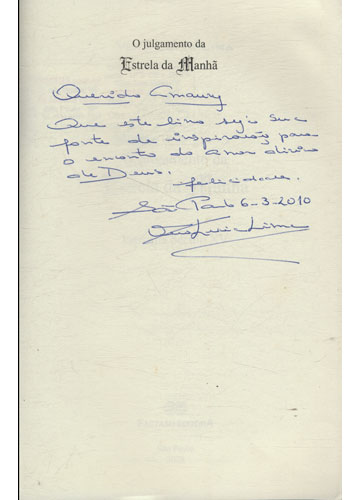 O julgamento da
Estrela da Manhã
Querido Amaury
Que este livro seja sua
fonte de inspiração para
o encontro do amor divino
de Deus.
felicidades.
São Paulo 6-3-2010